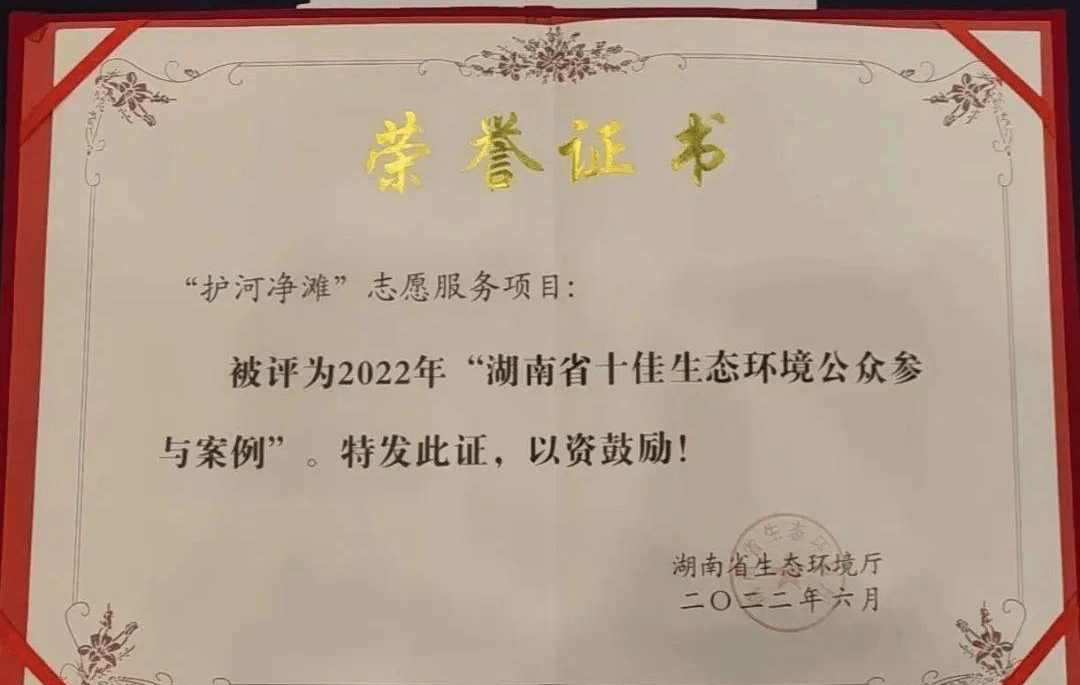 荣誉证书
“护河净滩”志愿服务项目:
被评为2022年“湖南省十佳生态环境公众参
与案例”。特发此证，以资鼓励!
省生态环
湖南省生态环境厅
二〇二二年六月